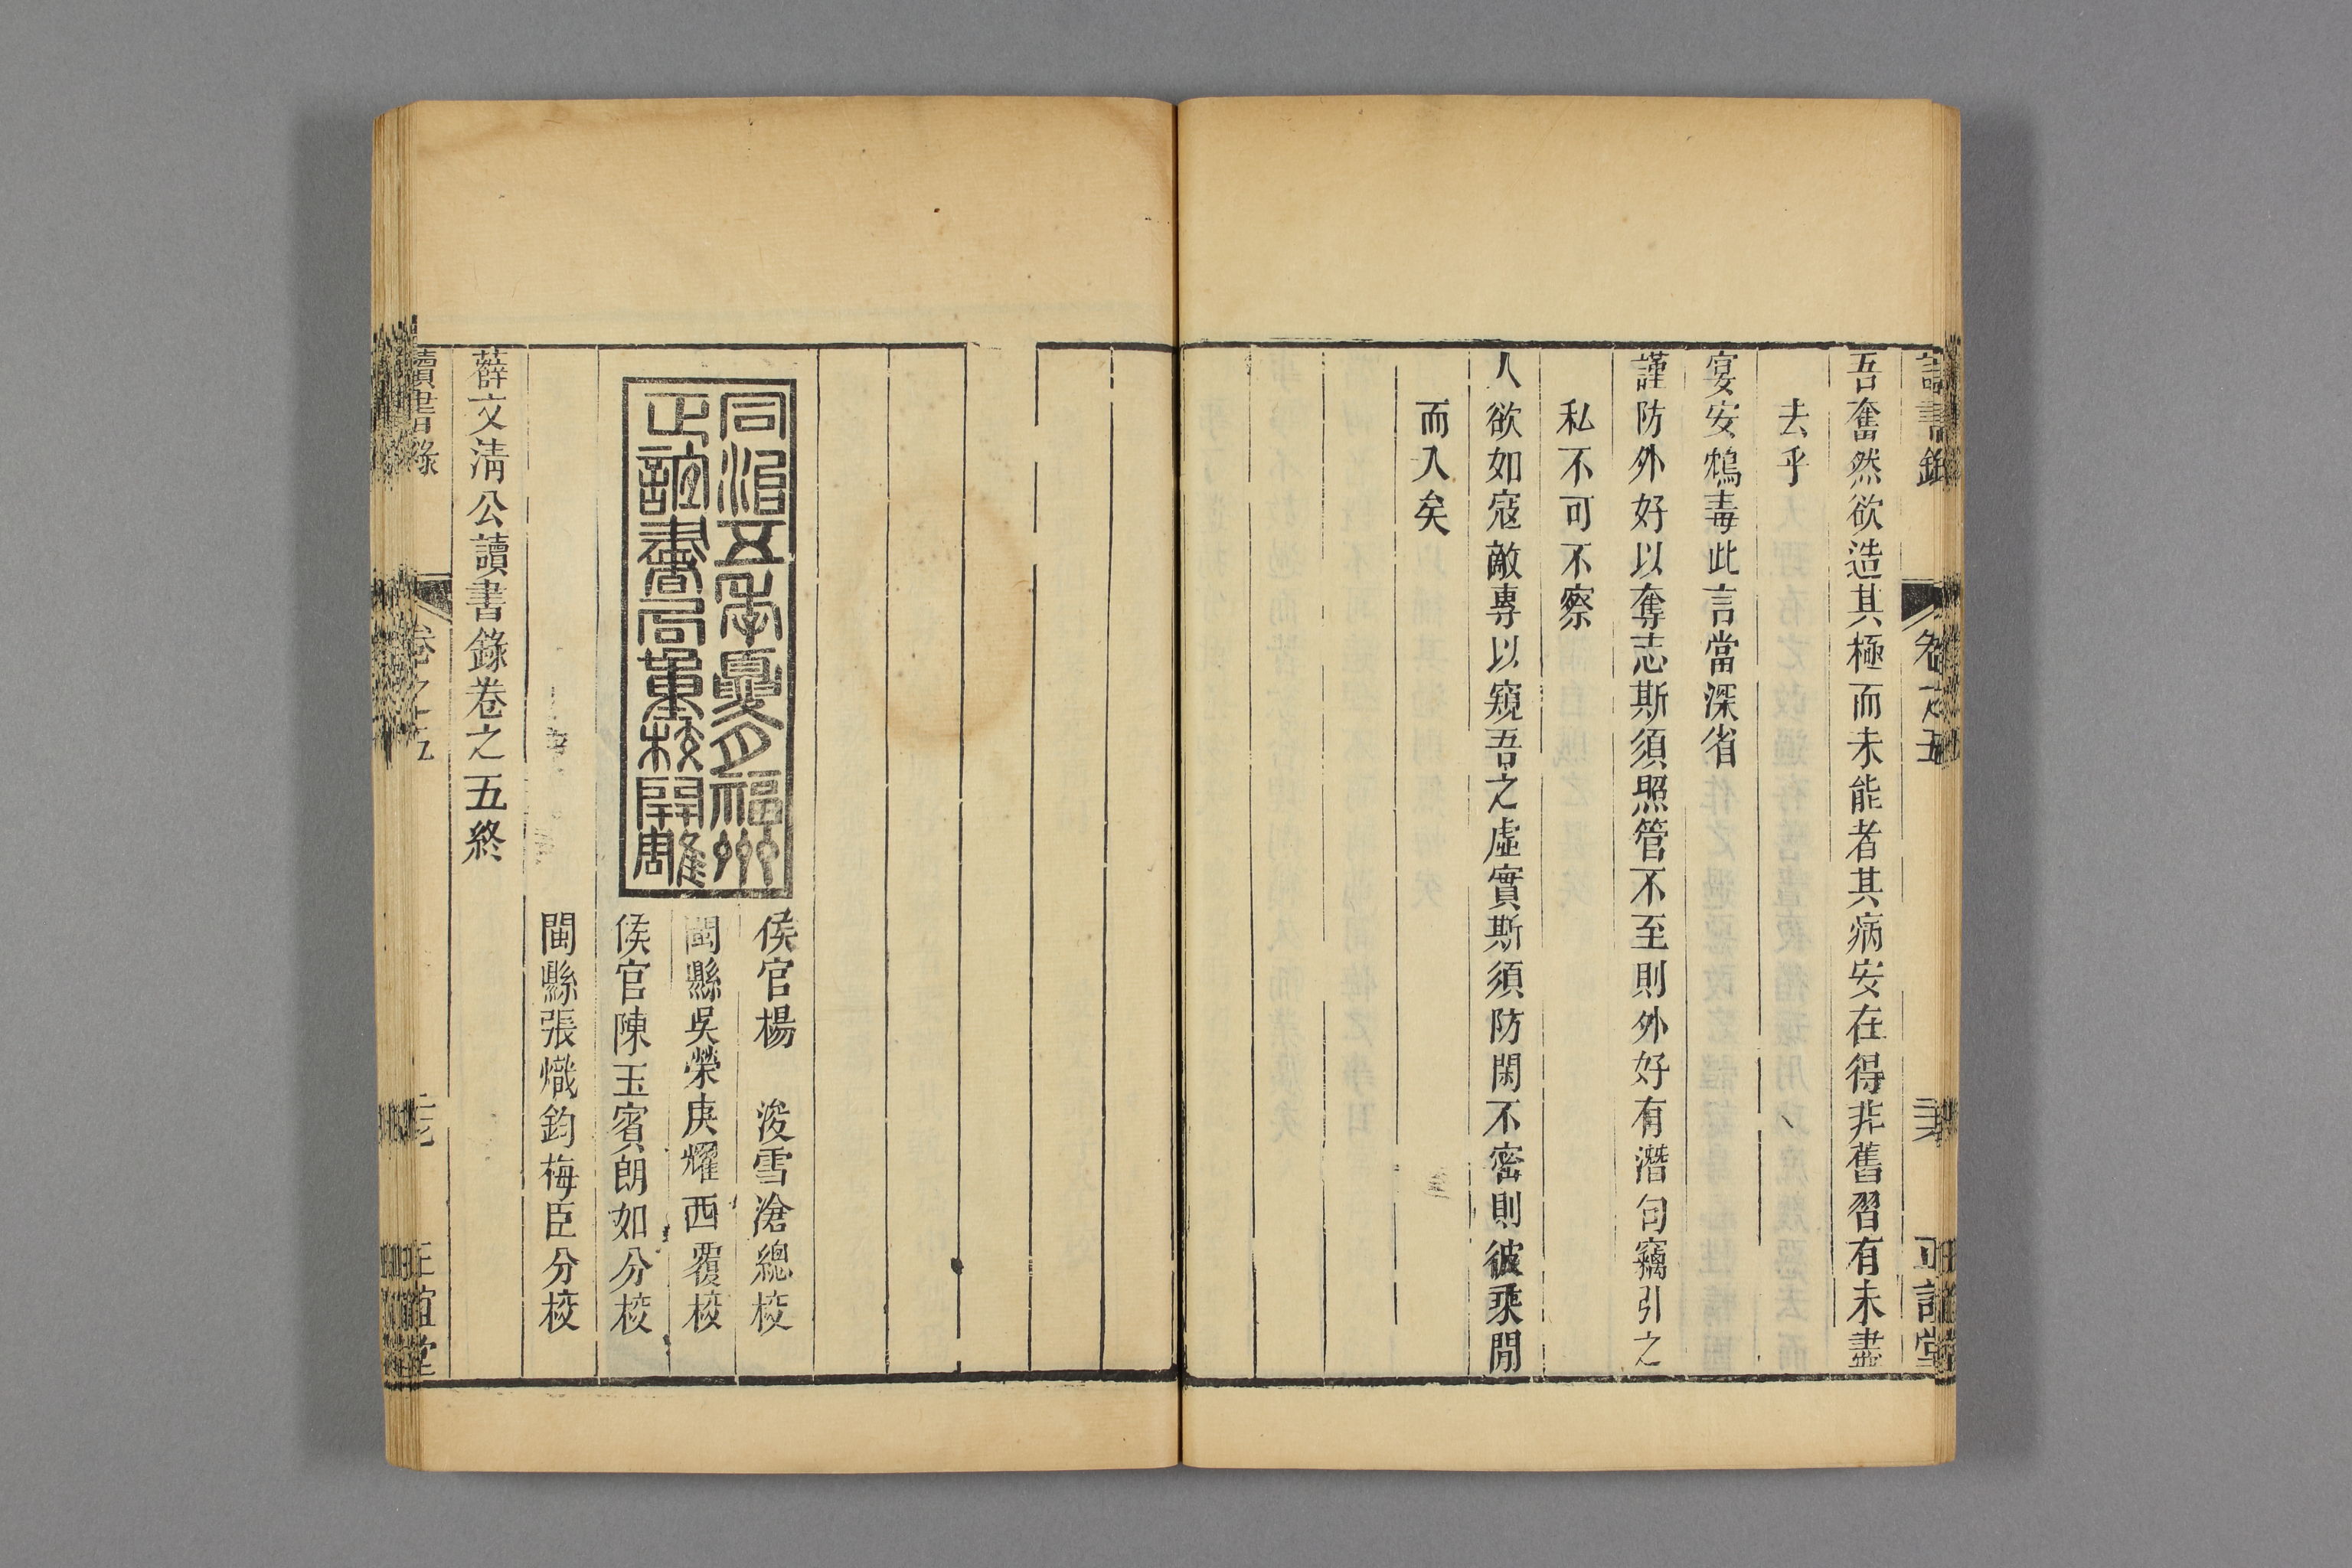 讀書錄 卷之五 正誼堂
吾奮然欲造其極而未能者其病安在得非舊習有未盡
去乎
宴安鴆毒此言當深省
謹防外好以奪志斯須照管不至則外好有潛勾竊引之
私不可不察
人欲如寇敵專以窺吾之虛實斯須防閑不密則彼乘閒
而入矣
同治五年夏月福州
正誼書局重校開雕
侯官楊 浚雪滄總校
閩縣吳榮庚耀西覆校
侯官陳玉賓朗如分校
閩縣張熾鈞梅臣分校
薛文清公讀書錄卷之五終
讀書錄 卷之五 正誼堂